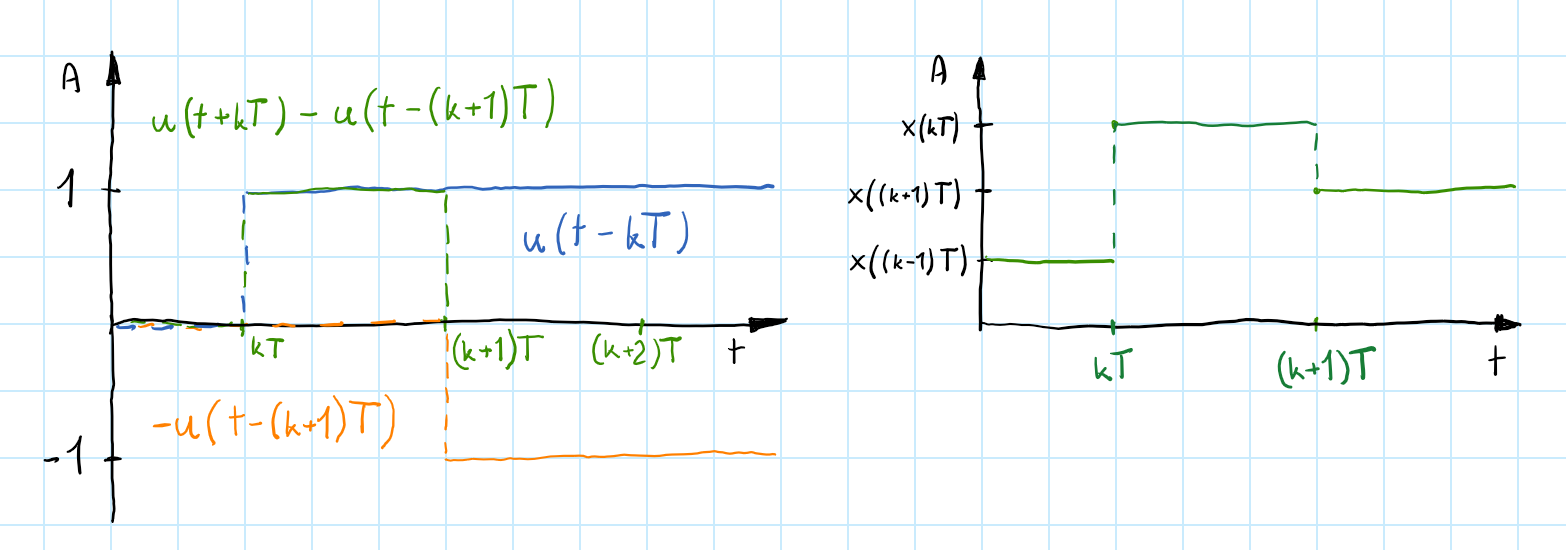 A
u(t+kT) - u(t-(k+1)T)
1
u(t-kT)
kT
(k+1)T
(k+2)T
t
-u(t-(k+1)T)
-1
A
x(kT)
x((k+1)T)
x((k-1)T)
kT
(k+1)T
t